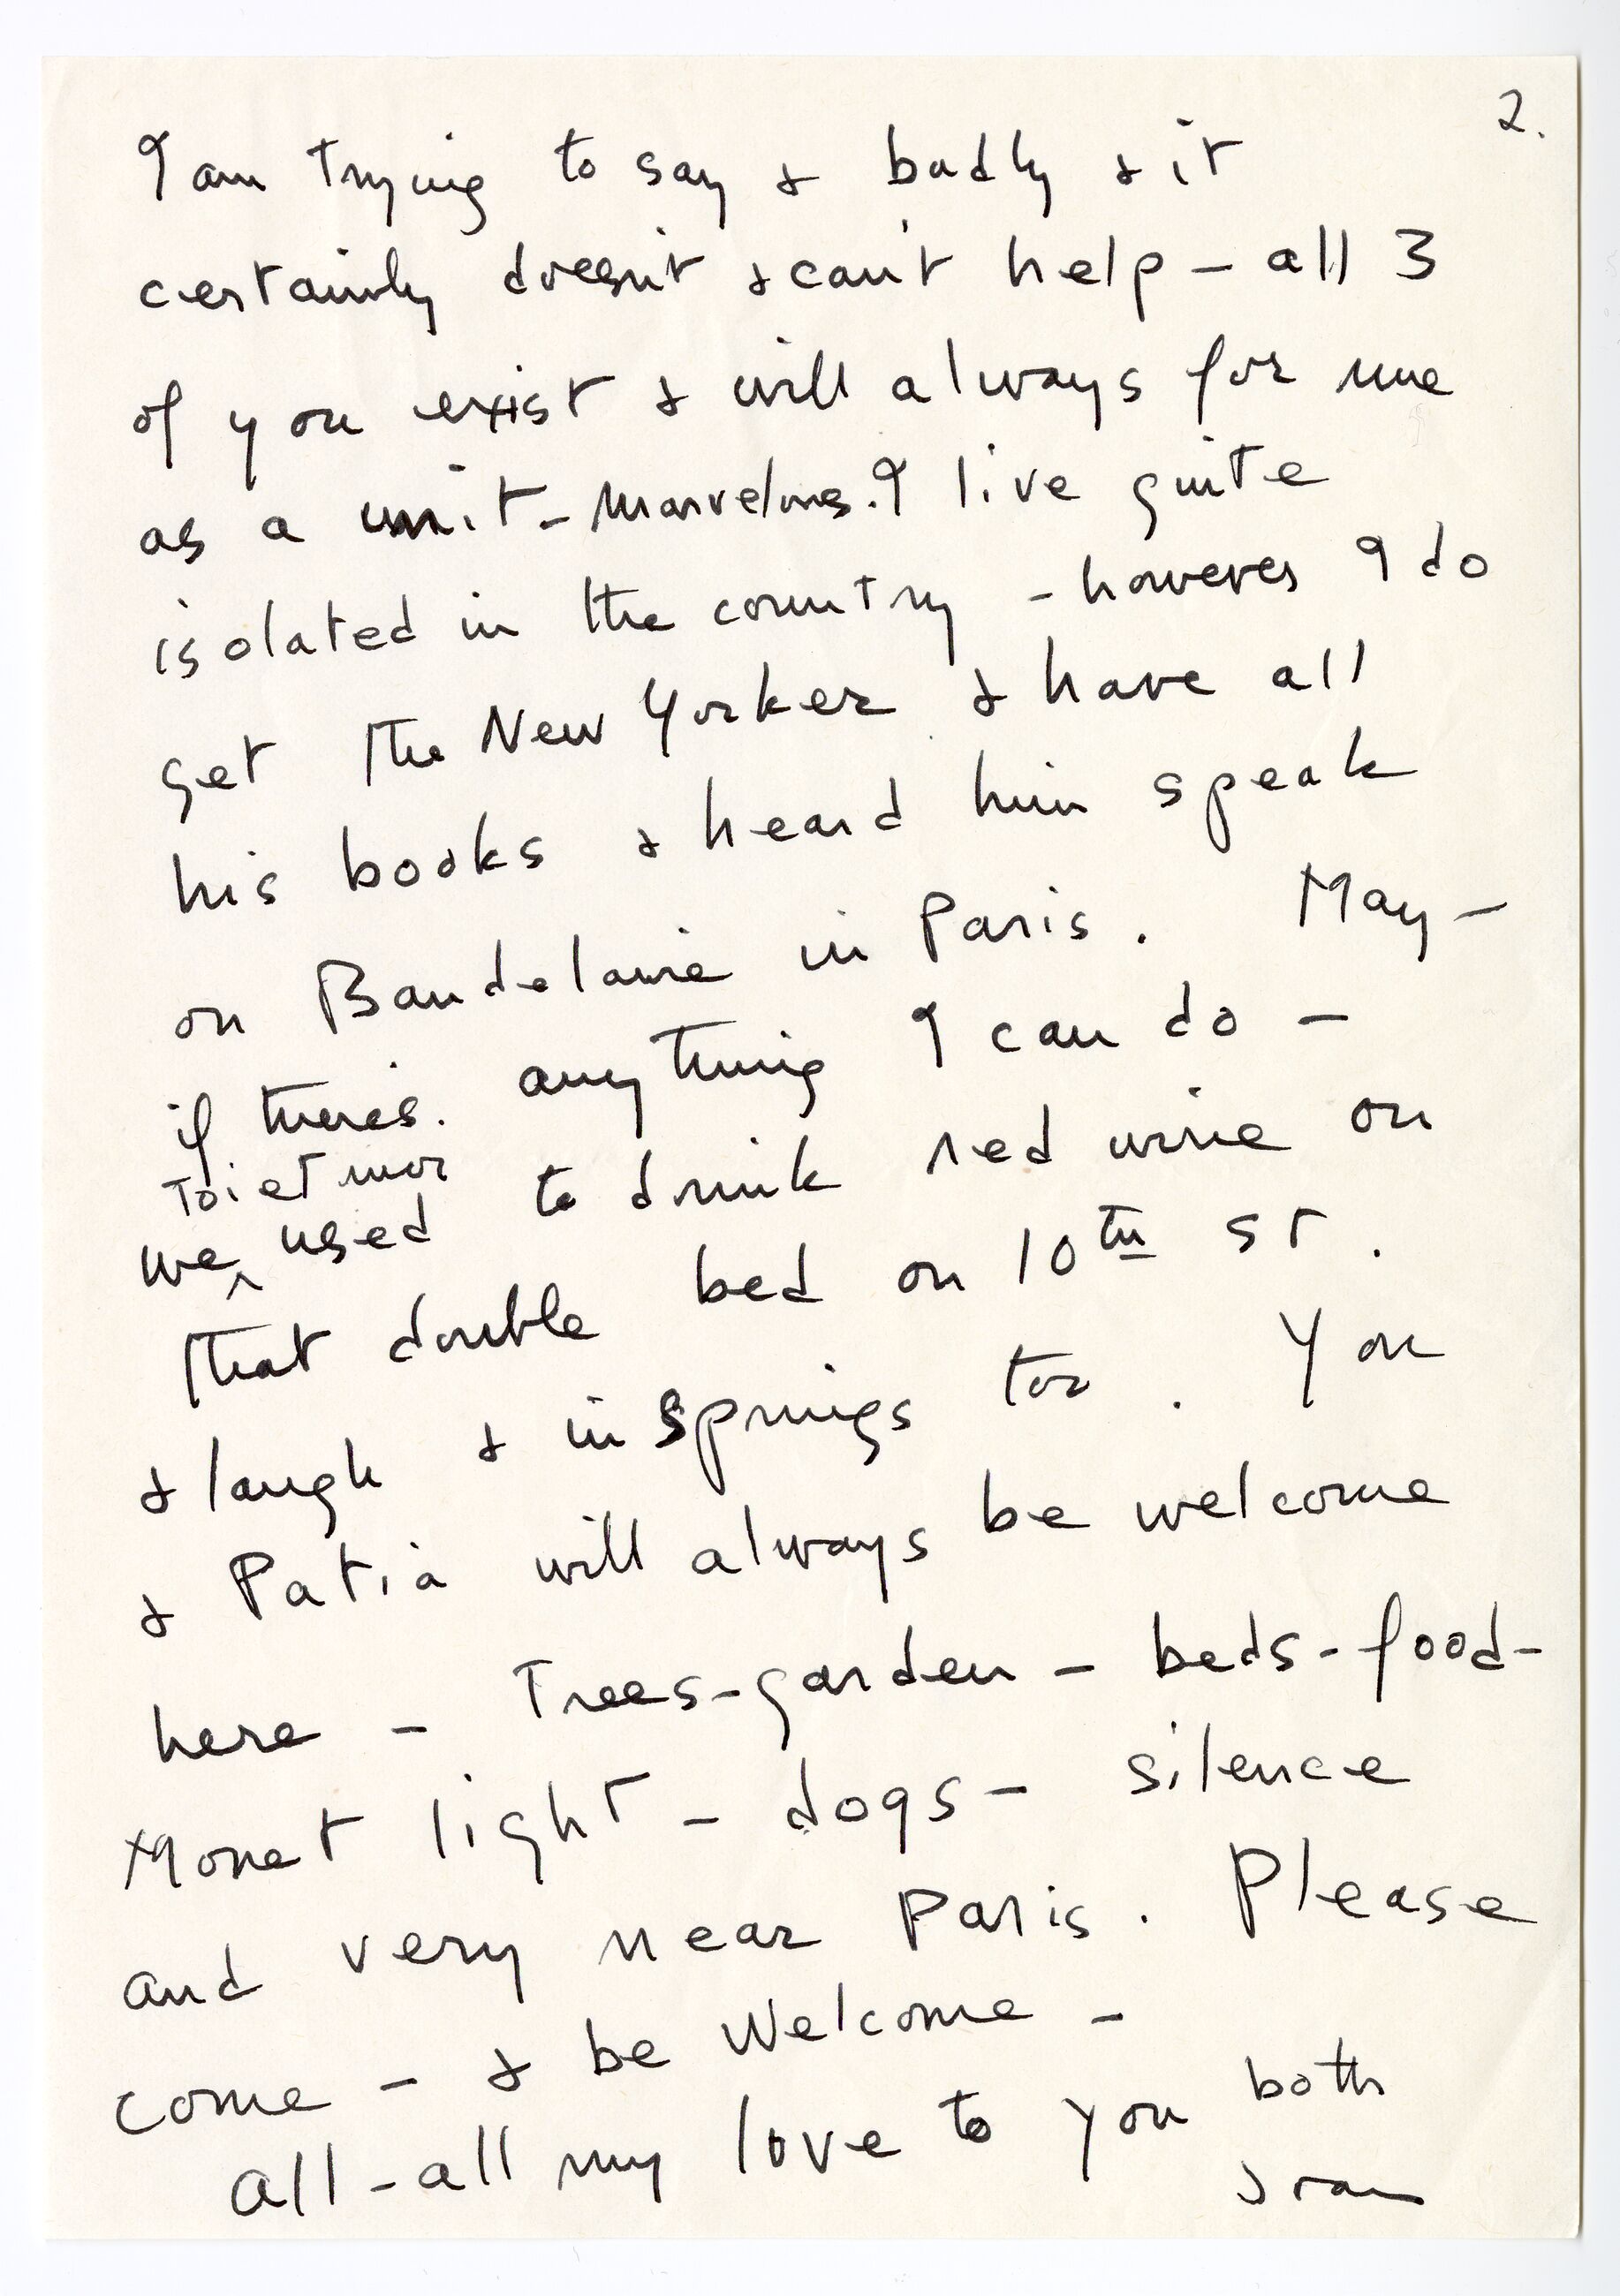 2.
I am trying to say & badly & it
certainly doesn't & can't help - all 3
of you exist & will always for me
as a unit - marvelous. I live quite
isolated in the country - however I do
get the New Yorker & have all
his books & heard him speak
on Baudelaire in Paris. May -
if there's. anything I can do -
toi et moi
we ^ used to drink red wine on
that double bed on 10th St.
& laugh & in Springs too. You
& Patia will always be welcome
here - Trees - garden - beds - food -
Monet light - dogs - silence
and very near Paris. Please
come - & be welcome -
all - all my love to you both
Joan